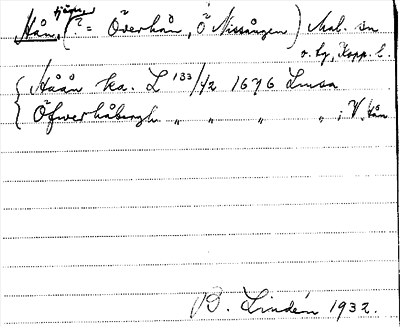 Hån, tjärn (? = Överhån, Ö Nissången) Mal. sn
o. by, Kopp. l.
Håån ka. L 133/1/2 1696 Lmsa
Öfwerhåbergh " " " " i V. Hån
B. Lindén 1932.